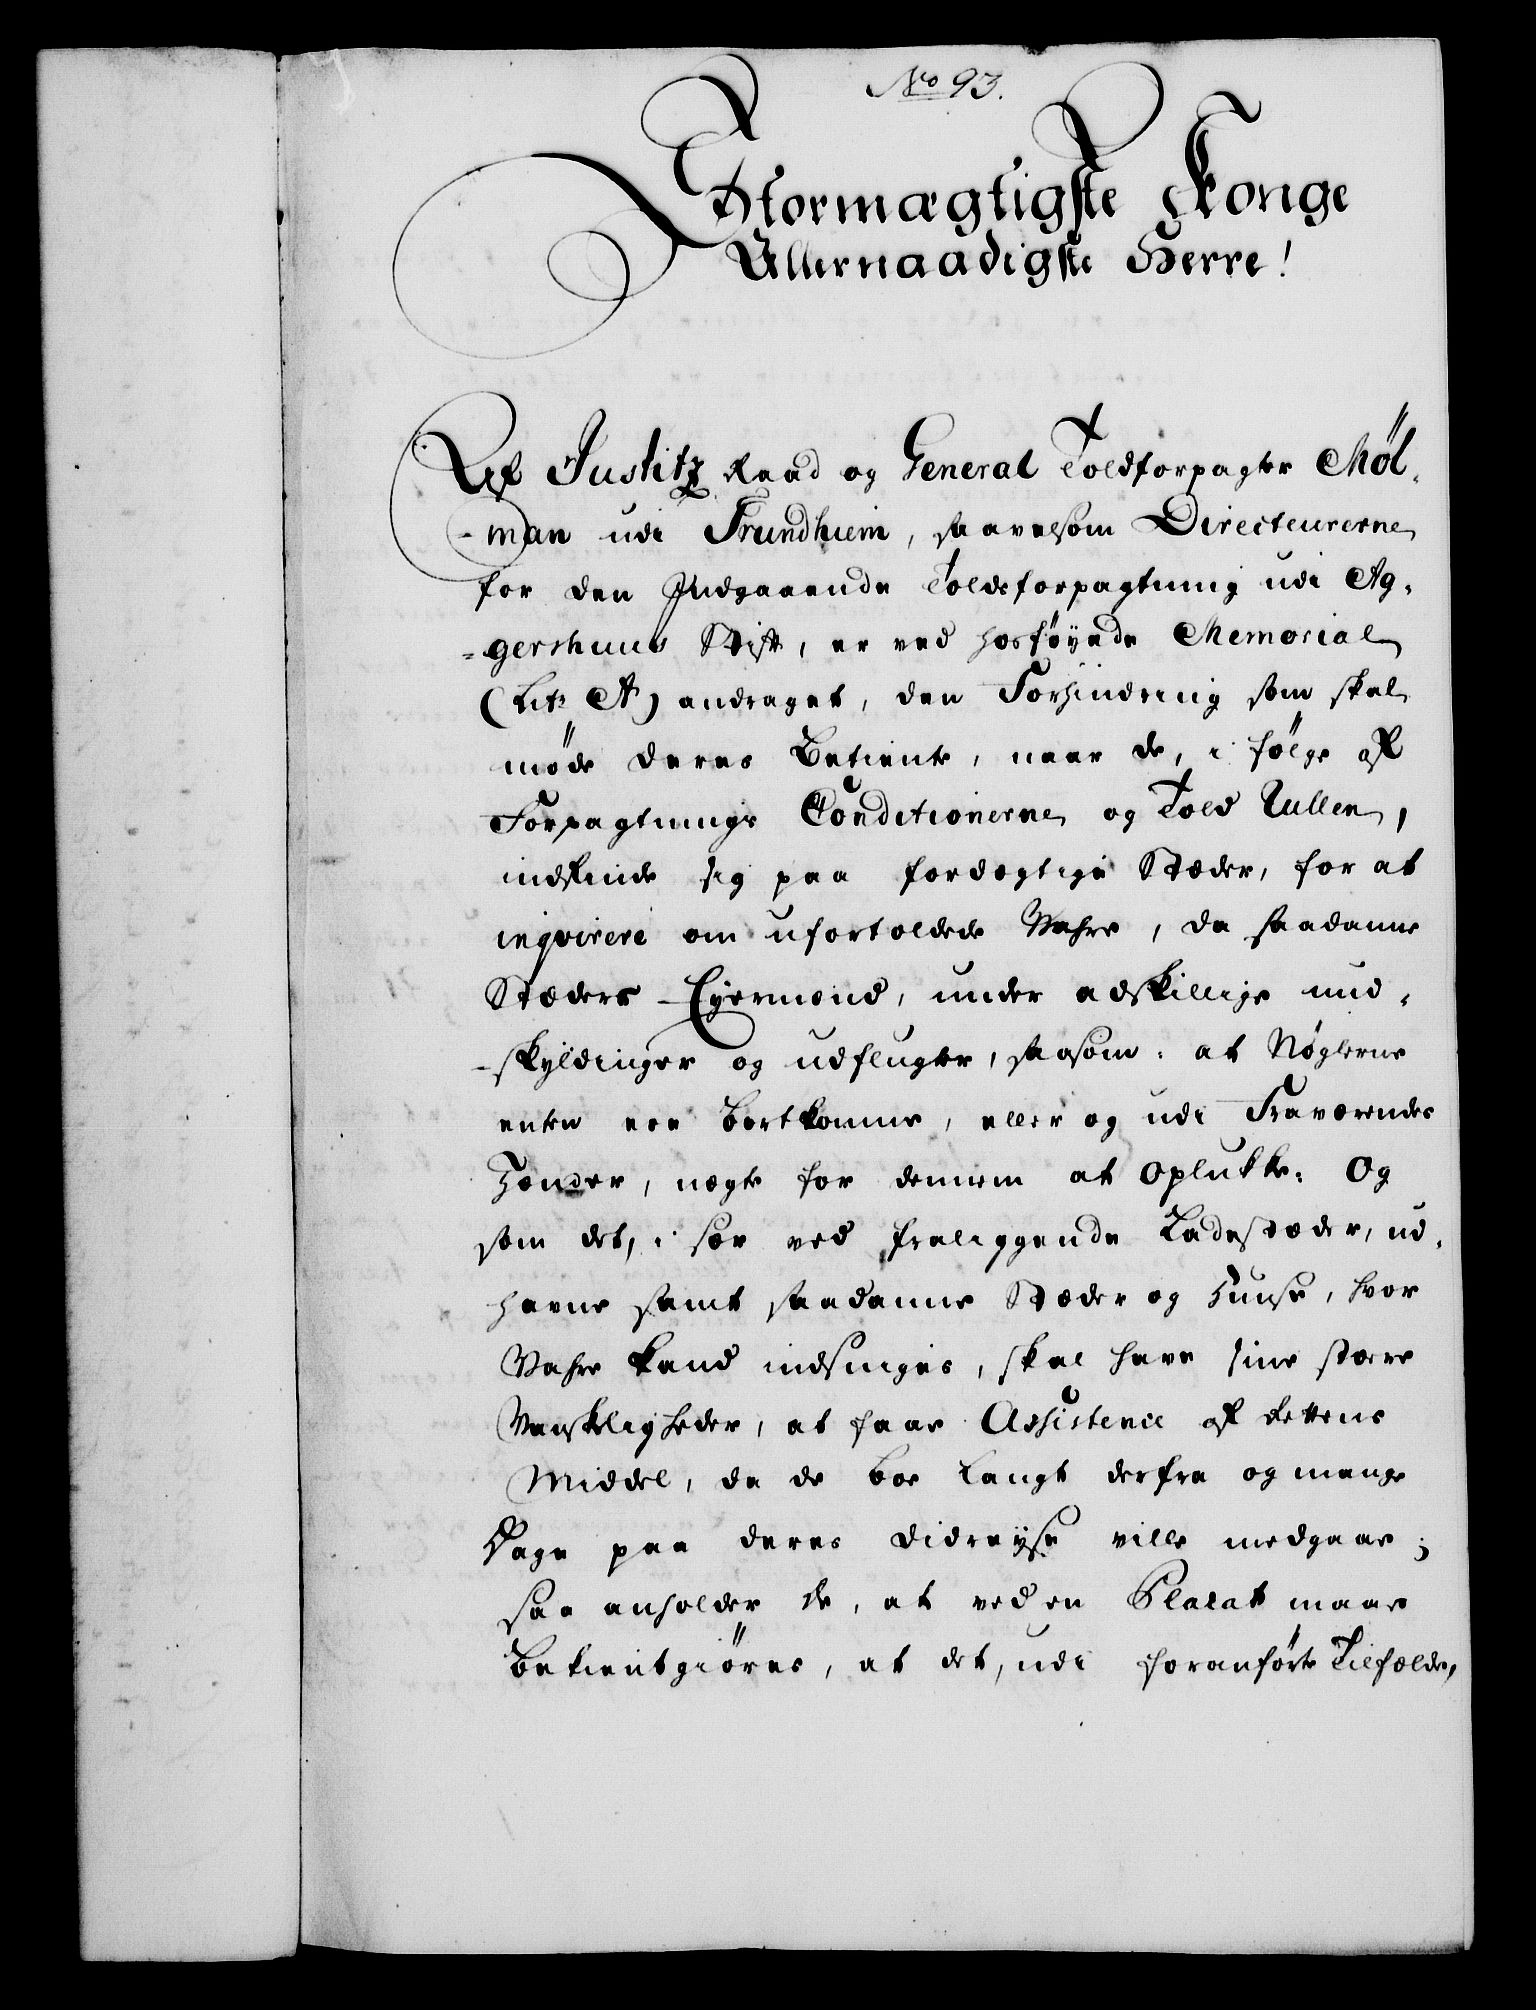 No 93.
Stormægtigste Konge
Allernaadigste Herre!
Af Justitz Raad og General Toldforpagter Möl-
-man udi Trundhiem, saavelsom Directeurerne
for den Indgaaende Toldforpagtning udi Ag-
-gershuus Stift, er ved hosföyede Memorial
(Litr A) andraget, den Forhindring som skal
möde deres Betiente, naar de, i fölge af
Forpagtnings Conditionerne og Told Rullen,
indfinde sig paa fordægtige Stæder, for at
inqvirere om ufortoldede Vahre, da saadanne
Stæders Eyermænd, under adskillige und-
-skyldinger og udflugter, saasom: at Nøglerne
enten ere bortkomne, eller og udi Fraværendes
Hænder, nægte for dennem at Oplukke: Og
som det, i sær ved fraliggende Ladestæder, ud-
havne samt saadanne Stæder og Huuse, hvor
Vahre kand indsniges, skal have sine større
Vanskligheder, at faae Assistence af Rettens
Middel, da de boe langt derfra og mange
Dage paa deres Didreyse ville medgaae;
saa anholder de, at ved en Placat maae
bekientgiöres, at det, udi foranförte Tilfælde,